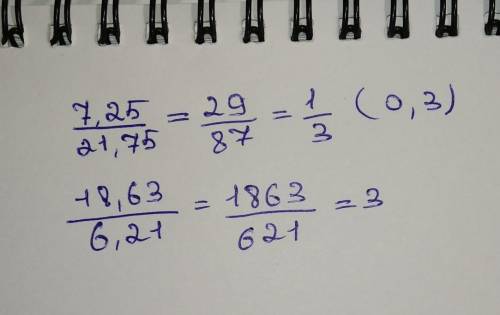 7,25/21,75 = 29/87 = 1/3 (0,3)
18,63/6,21 = 1863/621 = 3